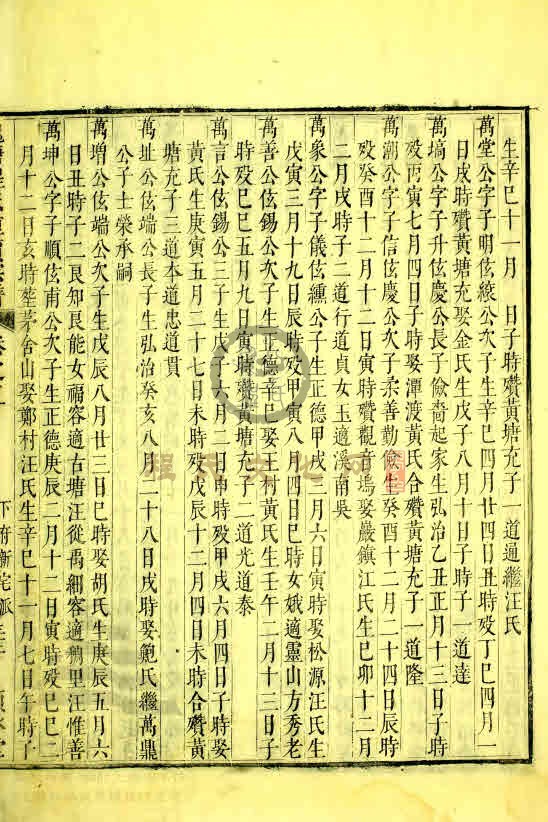 生辛巳十一月　日子時殯黃塘充子一道暹繼汪氏
萬堂公字子明伭線公次子生辛巳四月廿四日丑時歿丁巳四月一
日戌時殯黃塘充娶金氏生戊子八月十日子時子一道達
萬塙公字子升伭慶公長子儉嗇起家生弘治乙丑正月十三日子時
歿丙寅七月四日子時娶潭渡黃氏合殯黃塘充子一道隆
萬潮公字子信伭慶公次子柔善勤儉生癸酉十二月二十四日辰時
歿癸酉十二月十二日寅時殯觀音塢娶巖鎮江氏生巳卯十二月
二月戌時子二道行道貞女玉適溪南吳
萬象公字子儀伭纁公子生正德甲戌三月六日寅時娶松源汪氏生
戊寅三月十九日辰時歿甲寅八月四日巳時女娥適靈山方秀老
萬善公伭錫公次子生正德辛巳娶王村黃氏生壬午二月十三日子
時歿巳巳五月九日寅時殯黃塘充子二道光道泰
萬言公伭錫公三子生戊子十月二日申時歿甲戌六月四日子時娶
黃氏生庚寅五月二十七日未時歿戊辰十二月四日未時合殯黃
塘充子三道本道忠道貫
萬址公伭端公長子生弘治癸亥八月二十八日戌時娶鮑氏繼萬鼎
公子士榮承嗣
萬增公伭端公次子生戊辰八月廿三日巳時娶胡氏生庚辰五月六
日丑時子二良知良能女福容適古塘汪從禹細容適鵝里汪惟善
萬坤公字子順伭甫公次子生正德庚辰二月十二日寅時歿巳巳二
月十二日亥時葬茅舍山娶鄭村汪氏生辛巳十一月七日午時子